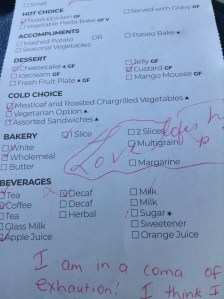 Small
HOT CHOICE
Roast Chicken GF
Served with Gravy GF
Vegetable Pasta Bake GF V
ACCOMPLIMENTS
Mashed Potato OR Potato Bake
Seasonal Vegetables
DESSERT
Cheesecake GF
Jelly GF
Icecream GF
Custard GF
Fresh Fruit Plate GF
Mango Mousse GF
COLD CHOICE
Meatloaf and Roasted Chargrilled Vegetables
Vegetarian Option
Assorted Sandwiches
BAKERY
1 Slice
2 Slices
White
Multigrain
Wholemeal
Butter
Margarine
Love
BEVERAGES
Tea
Decaf
Milk
Coffee
Decaf
Milk
Tea
Herbal
Sugar
Glass Milk
Sweetener
Apple Juice
Orange Juice
I am in a coma of
exhaution! I think I